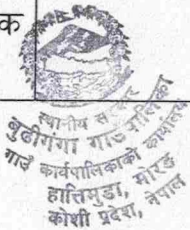 क
स्थानीय सरकार
बुढीगंगा गाउँपालिका
गाउँ कार्यपालिकाको कार्यालय
हात्तिमुडा, मोरङ
कोशी प्रदेश, नेपाल